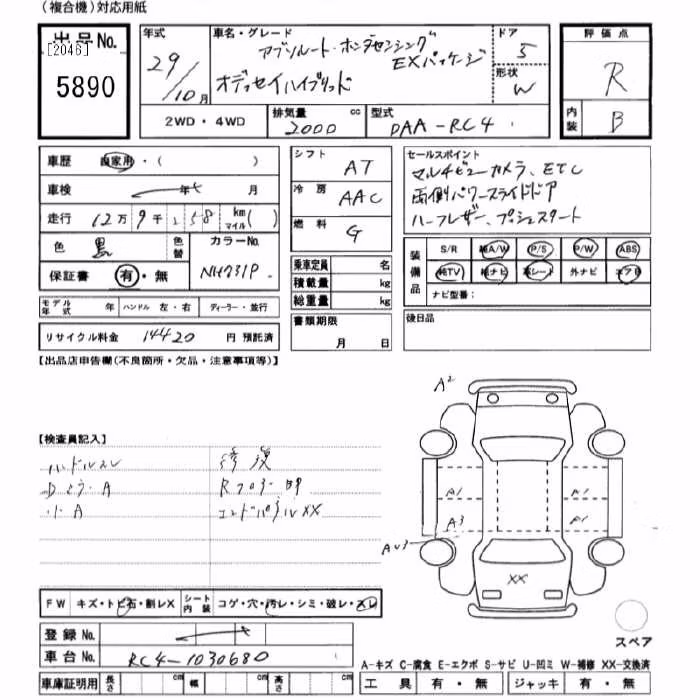 (複合機)対応用紙
出品No.
[2046]
5890
年式
29/10月
車名・グレード
アブソルート・ホンダセンシング
EXパッケージ
オデッセイハイブリッド
ドア
5
形状
W
評価点
R
内装
B
2WD・4WD
排気量
2000
cc
型式
DAA-RC4
車歴
自家用・( )
車検
年 月
走行
12万9千258
km
マイル( )
色
黒
色替
カラーNo.
NH731P
保証書
有・無
モデル年式
年
ハンドル 左・右
ディーラー・並行
リサイクル料金
14420
円 預託済
シフト
AT
冷房
AAC
燃料
G
乗車定員
名
積載量
kg
総重量
kg
書類期限
月 日
セールスポイント
マルチビューカメラ、ETC
両側パワースライドドア
ハーフレザー、プッシュスタート
装備品
S/R
純A/W
P/S
P/W
ABS
純TV
純ナビ
革シート
外ナビ
エアB
ナビ型番:
後日品
【出品店申告欄(不良箇所・欠品・注意事項等)】
【検査員記入】
ハンドルスレ
修復
Rフロアー
エンドパネルXX
A2
A1
A1
A3
A1
XX
スペア
FW
キズ・トビ石・割レX
シート内装
コゲ・穴・汚レ・シミ・破レ・スレ
登録No.
車台No.
RC4-1030680
車庫証明用
長さ
cm
幅
cm
高さ
cm
A-キズ C-腐食 E-エクボ S-サビ U-凹ミ W-補修 XX-交換済
工具
有・無
ジャッキ
有・無